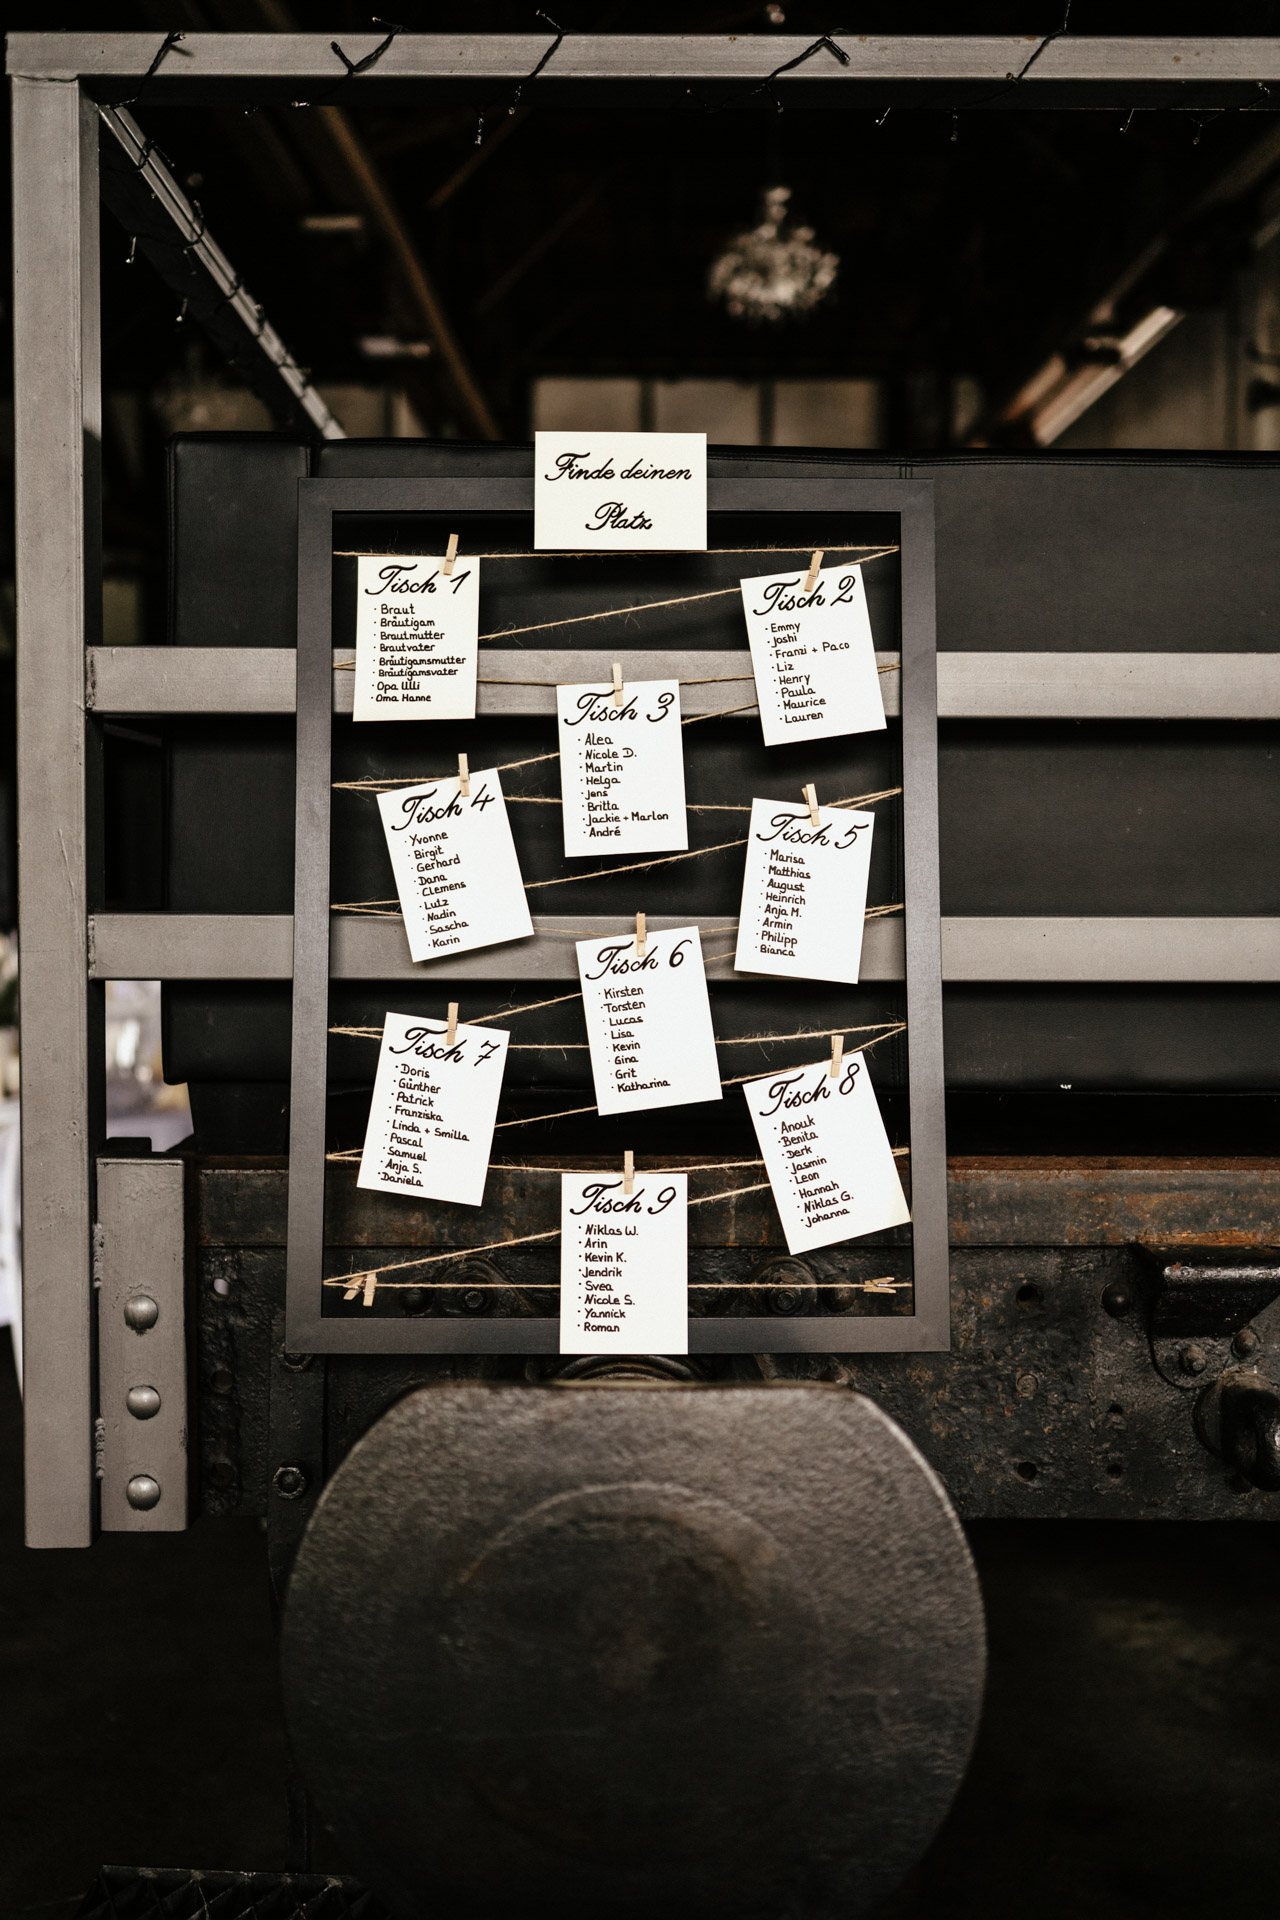 Finde deinen
Platz
Tisch 1
· Braut
· Bräutigam
· Brautmutter
· Brautvater
· Bräutigamsmutter
· Bräutigamsvater
· Opa Ulli
· Oma Hanne
Tisch 2
· Emmy
· Joshi
· Franzi + Paco
· Liz
· Henry
· Paula
· Maurice
· Lauren
Tisch 3
· Alea
· Nicole D.
· Martin
· Helga
· Jens
· Britta
· Jackie + Marlon
· André
Tisch 4
· Yvonne
· Birgit
· Gerhard
· Dana
· Clemens
· Lutz
· Nadin
· Sascha
· Karin
Tisch 5
· Marisa
· Matthias
· August
· Heinrich
· Anja M.
· Armin
· Philipp
· Bianca
Tisch 6
· Kirsten
· Torsten
· Lucas
· Lisa
· Kevin
· Gina
· Grit
· Katharina
Tisch 7
· Doris
· Günther
· Patrick
· Franziska
· Linda + Smilla
· Pascal
· Samuel
· Anja S.
· Daniela
Tisch 8
· Anouk
· Benita
· Derk
· Jasmin
· Leon
· Hannah
· Niklas G.
· Johanna
Tisch 9
· Niklas W.
· Arin
· Kevin K.
· Jendrik
· Svea
· Nicole S.
· Yannick
· Roman